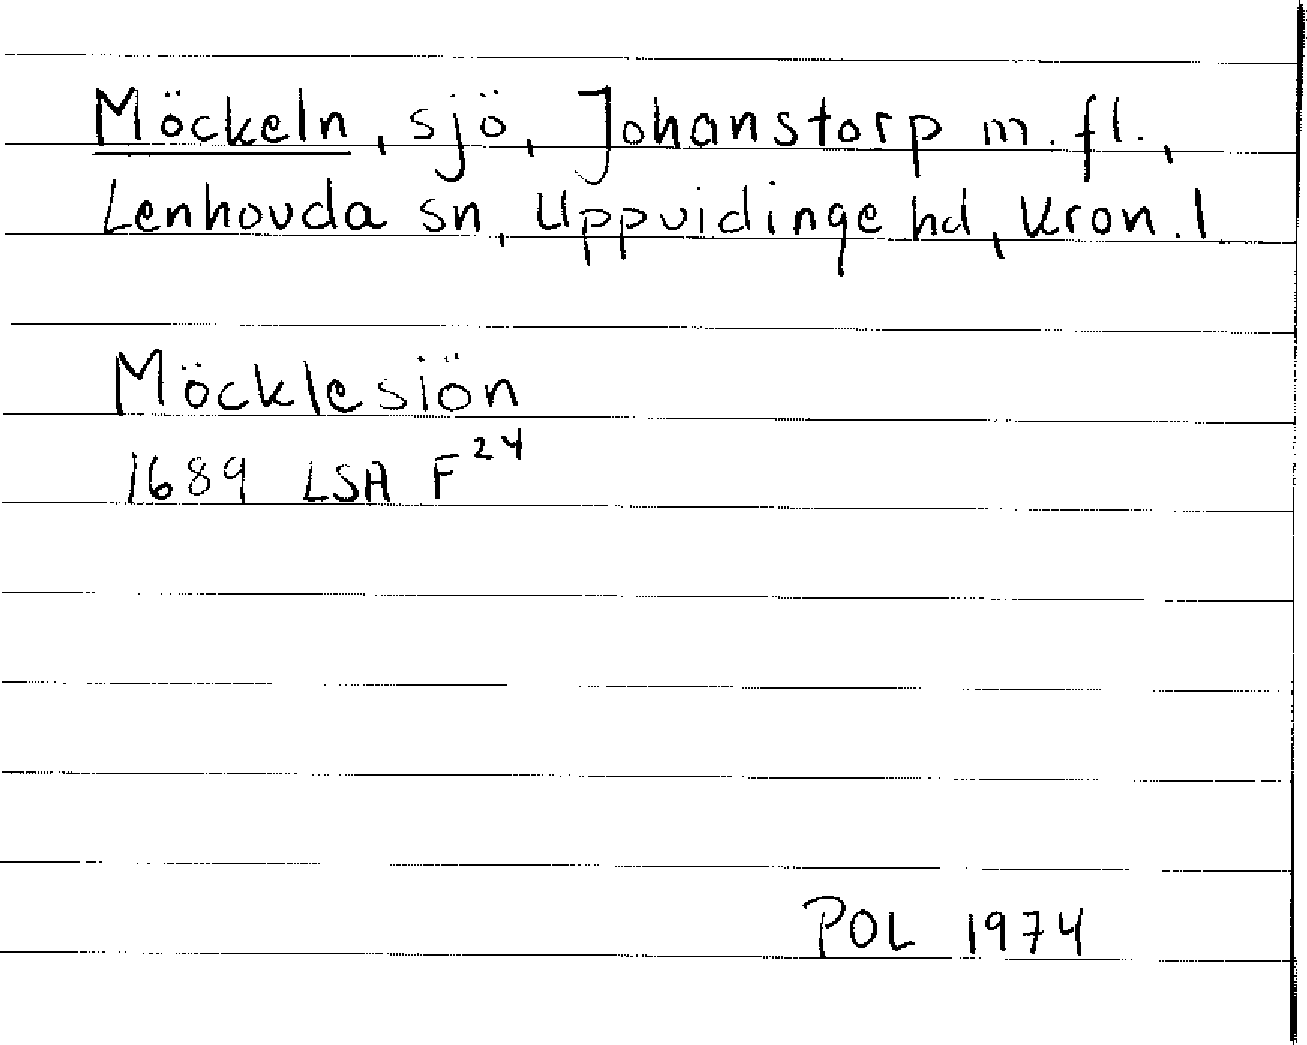 Möckeln, sjö, Johanstorp m. fl.,
Lenhovda sn, Uppvidinge hd, Kron. l
Möcklesiön
1689 LSA F²⁴
POL 1974